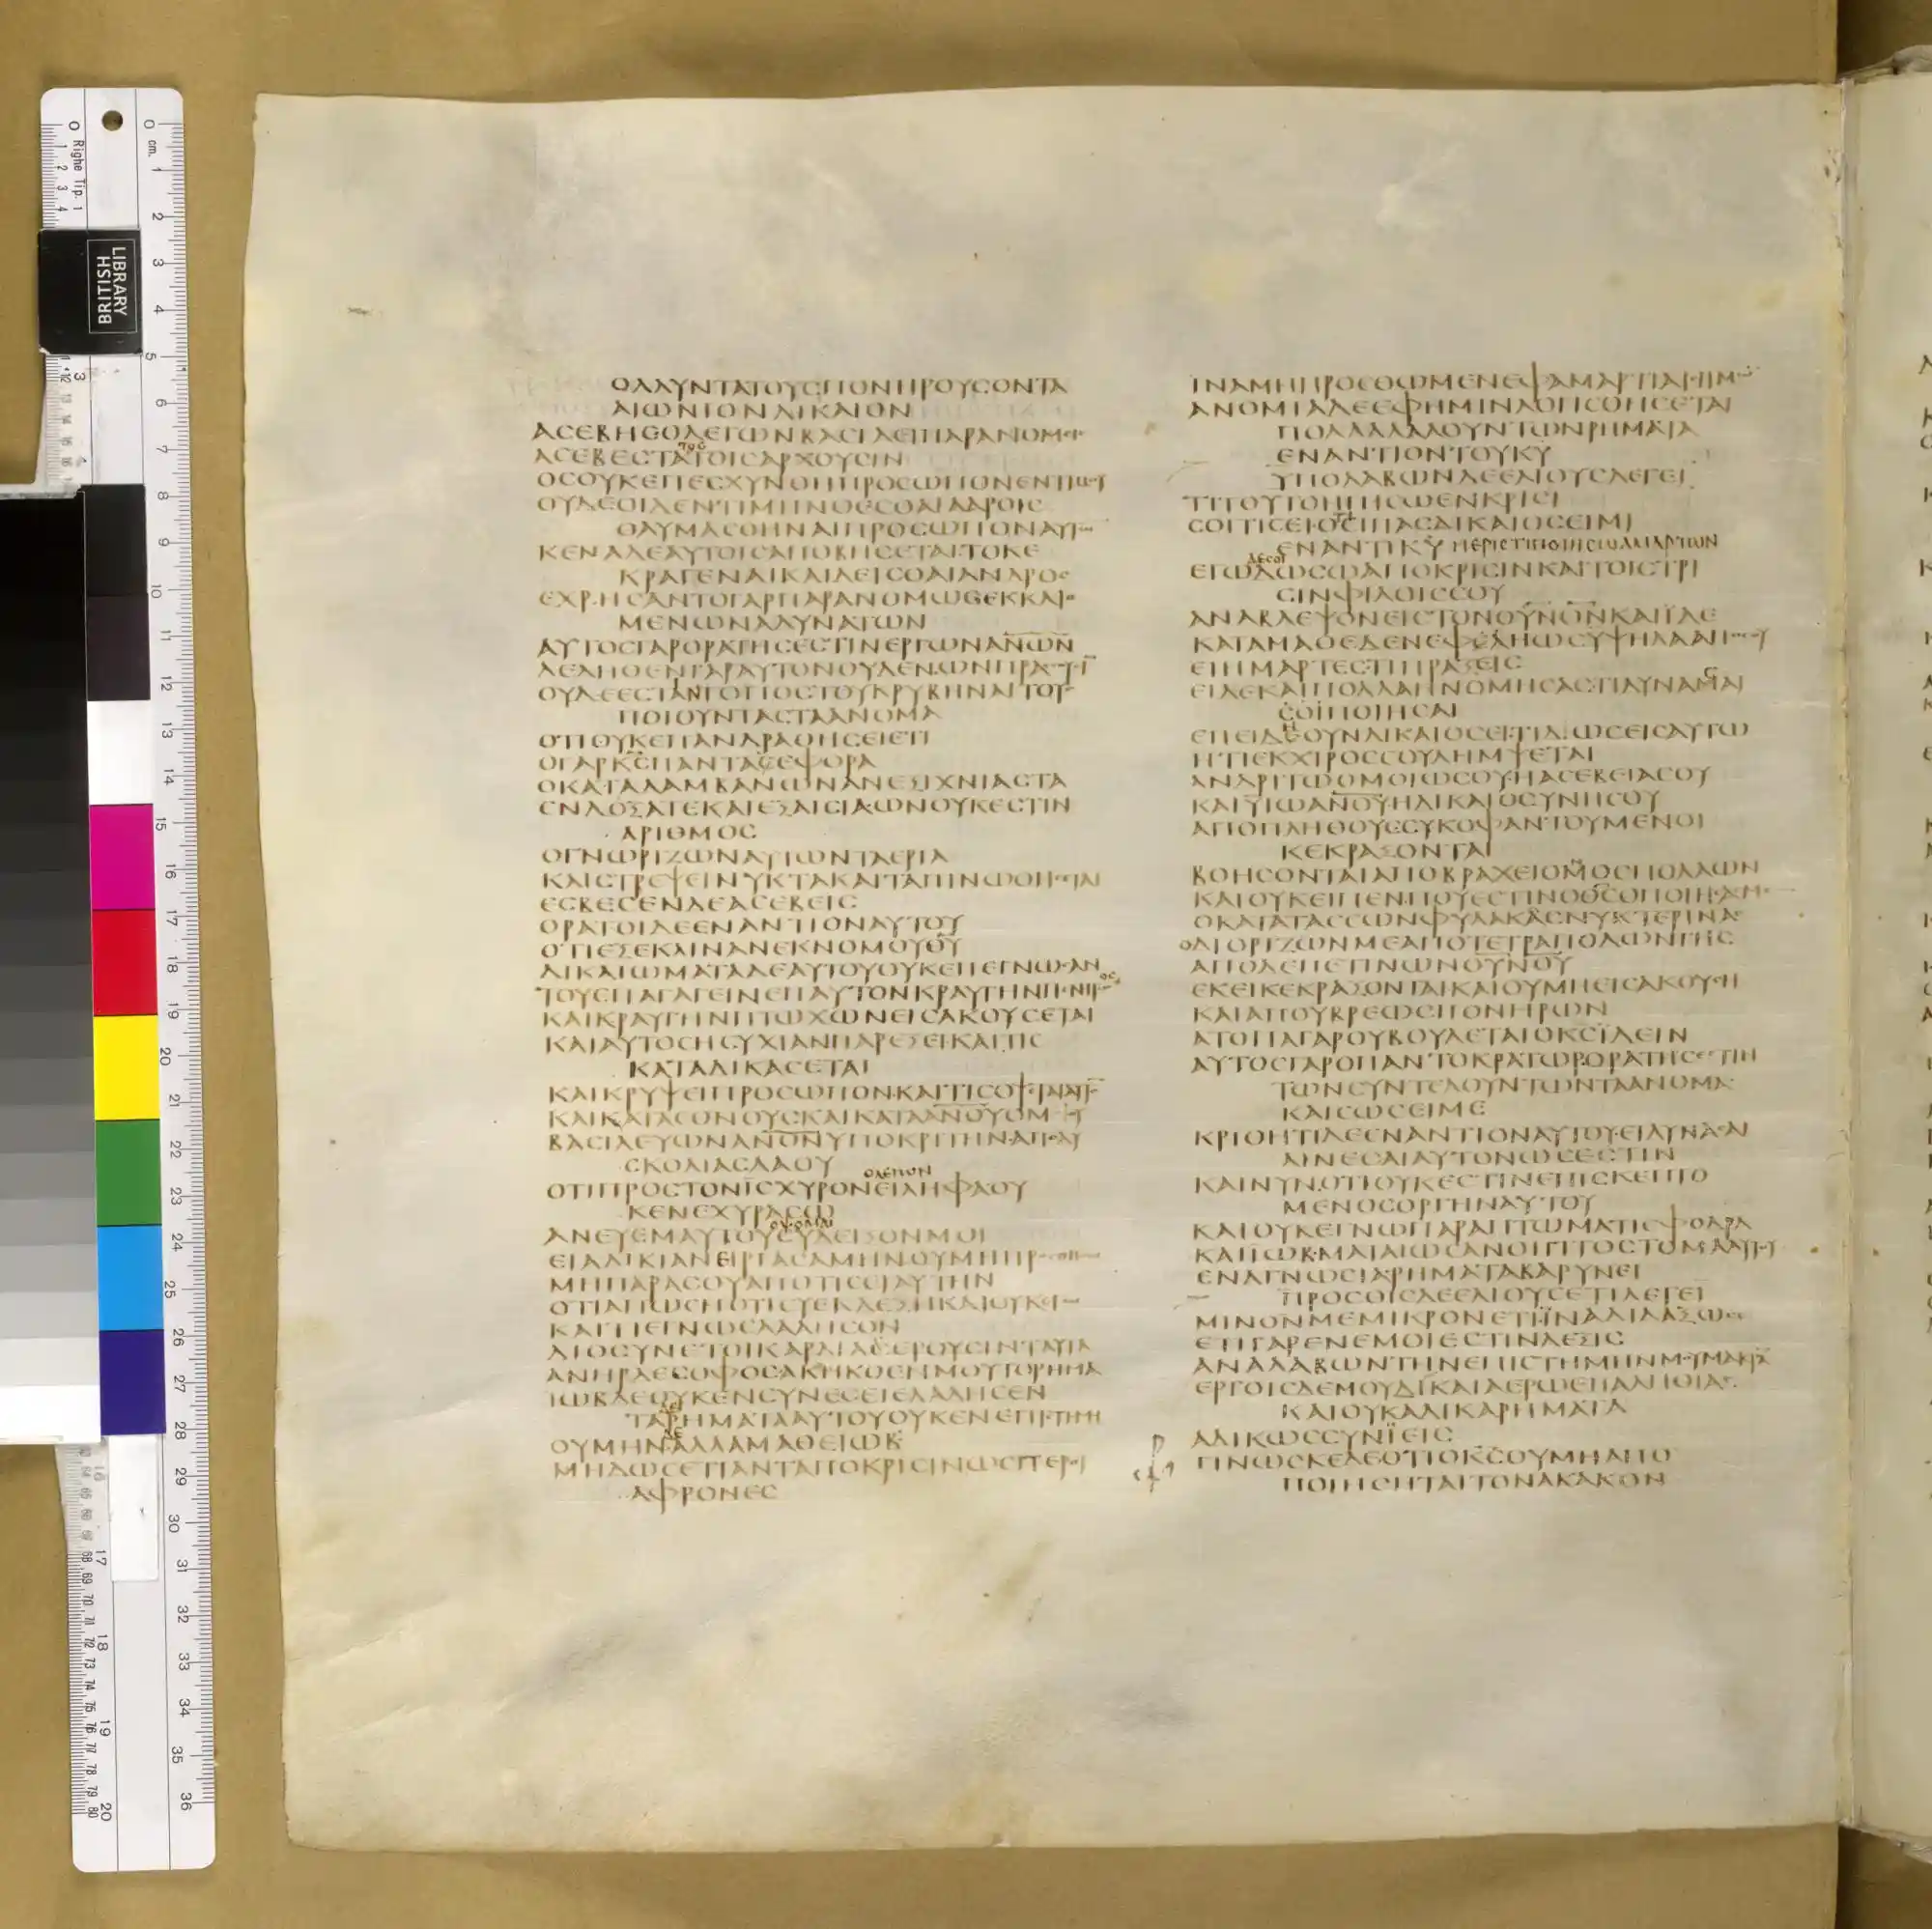 ΟΛΛΥΝΤΑΤΟΥΣΠΟΝΗΡΟΥΣΟΝΤΑ
ΑΙΩΝΙΟΝΔΙΚΑΙΟΝ
ΑΣΕΒΗΣΟΛΕΓΩΝΒΑΣΙΛΕΙΠΑΡΑΝΟΜ
ΑΣΕΒΕΣΤΑΤΟΙΣΑΡΧΟΥΣΙΝ
ΟΣΟΥΚΕΠΕΣΧΥΝΘΗΠΡΟΣΩΠΟΝΕΝΤΙΜΟΥ
ΟΥΔΕΟΙΔΕΝΤΙΜΗΝΘΕΣΘΑΙΑΔΡΟΙΣ
ΘΑΥΜΑΣΘΗΝΑΙΠΡΟΣΩΠΟΝΑΥΤ
ΚΕΝΑΔΕΑΥΤΟΙΣΑΠΟΒΗΣΕΤΑΙΤΟΚΕ
ΚΡΑΓΕΝΑΙΚΑΙΔΕΙΣΘΑΙΑΝΔΡΟΣ
ΕΧΡΗΣΑΝΤΟΓΑΡΠΑΡΑΝΟΜΩΣΕΚΚΛΙ
ΜΕΝΩΝΑΔΥΝΑΤΩΝ
ΑΥΤΟΣΓΑΡΟΡΑΤΗΣΕΣΤΙΝΕΡΓΩΝΑΝΩΝ
ΛΕΛΗΘΕΝΓΑΡΑΥΤΟΝΟΥΔΕΝΩΝΠΡΑ
ΟΥΔΕΕΣΤΑΙΤΟΠΟΣΤΟΥΚΡΥΒΗΝΑΙΤΟΥΣ
ΠΟΙΟΥΝΤΑΣΤΑΑΝΟΜΑ
ΟΤΙΟΥΚΕΠΑΝΔΡΑΘΗΣΕΙΕΤΙ
ΟΓΑΡΚΣΠΑΝΤΑΣΕΦΟΡΑ
ΟΚΑΤΑΛΑΜΒΑΝΩΝΑΝΕΞΙΧΝΙΑΣΤΑ
ΕΝΔΟΞΑΤΕΚΑΙΕΞΑΙΣΙΑΩΝΟΥΚΕΣΤΙΝ
ΑΡΙΘΜΟΣ
ΟΓΝΩΡΙΖΩΝΑΥΤΩΝΤΑΕΡΓΑ
ΚΑΙΣΤΡΕΨΕΙΝΥΚΤΑΚΑΙΤΑΠΙΝΩΘΗΣΟΝΤΑΙ
ΕΣΒΕΣΕΝΔΕΑΣΕΒΕΙΣ
ΟΡΑΤΟΙΔΕΕΝΑΝΤΙΟΝΑΥΤΟΥ
ΟΤΙΕΞΕΚΛΙΝΑΝΕΚΝΟΜΟΥΘΥ
ΔΙΚΑΙΩΜΑΤΑΔΕΑΥΤΟΥΟΥΚΕΠΕΓΝΩΣΑΝ
ΤΟΥΕΠΑΓΑΓΕΙΝΕΠΑΥΤΟΝΚΡΑΥΓΗΝΠΕΝΗΤΟΣ
ΚΑΙΚΡΑΥΓΗΝΠΤΩΧΩΝΕΙΣΑΚΟΥΣΕΤΑΙ
ΚΑΙΑΥΤΟΣΗΣΥΧΙΑΝΠΑΡΕΞΕΙΚΑΙΤΙΣ
ΚΑΤΑΔΙΚΑΣΕΤΑΙ
ΚΑΙΚΡΥΨΕΙΠΡΟΣΩΠΟΝΚΑΙΤΙΣΟΨΕΤΑΙΑΥΤ
ΚΑΙΚΑΤΑΕΘΝΟΥΣΚΑΙΚΑΤΑΑΝΟΥΟΜΟΥ
ΒΑΣΙΛΕΥΩΝΑΝΟΝΥΠΟΚΡΙΤΗΝΑΠΟΔΥ
ΣΚΟΛΙΑΣΛΑΟΥ
ΟΤΙΠΡΟΣΤΟΝΙΣΧΥΡΟΝΕΙΛΗΦΑΟΥ
ΚΕΝΕΧΥΡΑΣΩ
ΑΝΕΥΕΜΑΥΤΟΥΣΥΔΕΙΞΟΝΜΟΙ
ΕΙΑΔΙΚΙΑΝΕΙΡΓΑΣΑΜΗΝΟΥΜΗΠΡ
ΜΗΠΑΡΑΣΟΥΑΠΟΤΙΣΕΙΑΥΤΗΝ
ΟΤΙΑΠΩΣΗΟΤΙΣΥΕΚΛΕΞΗΚΑΙΟΥΚΕΓ
ΚΑΙΤΙΕΓΝΩΣΛΑΛΗΣΟΝ
ΔΙΟΣΥΝΕΤΟΙΚΑΡΔΙΑΣΕΡΟΥΣΙΝΤΑΥΤΑ
ΑΝΗΡΔΕΣΟΦΟΣΑΚΗΚΟΕΝΜΟΥΤΟΡΗΜΑ
ΙΩΒΔΕΟΥΚΕΝΣΥΝΕΣΕΙΕΛΑΛΗΣΕΝ
ΤΑΡΗΜΑΤΑΑΥΤΟΥΟΥΚΕΝΕΠΙΣΤΗΜΗ
ΟΥΜΗΝΑΛΛΑΜΑΘΕΙΩΒ
ΜΗΔΩΣΕΤΙΑΝΤΑΠΟΚΡΙΣΙΝΩΣΠΕΡΟΙ
ΑΦΡΟΝΕΣ
ΙΝΑΜΗΠΡΟΣΘΩΜΕΝΕΦΑΜΑΡΤΙΑΙΣΗΜ
ΑΝΟΜΙΑΔΕΕΦΗΜΙΝΛΟΓΙΣΘΗΣΕΤΑΙ
ΠΟΛΛΑΛΑΛΟΥΝΤΩΝΡΗΜΑΤΑ
ΕΝΑΝΤΙΟΝΤΟΥΚΥ
ΥΠΟΛΑΒΩΝΔΕΕΛΙΟΥΣΛΕΓΕΙ
ΤΙΤΟΥΤΟΗΓΗΣΩΕΝΚΡΙΣΙ
ΣΟΙΤΙΣΕΙΟΤΙΕΙΠΑΣΔΙΚΑΙΟΣΕΙΜΙ
ΕΝΑΝΤΙΚΥ ΗΕΡΙΣΤΙΠΟΙΗΣΩΑΜΑΡΤΩΝ
ΕΓΩΔΩΣΩΑΠΟΚΡΙΣΙΝΚΑΙΤΟΙΣΤΡΙ
ΣΙΝΦΙΛΟΙΣΣΟΥ
ΑΝΑΒΛΕΨΟΝΕΙΣΤΟΝΟΥΝΟΝΚΑΙΙΔΕ
ΚΑΤΑΜΑΘΕΔΕΝΕΦΕΛΗΩΣΥΨΗΛΑΑΠΟΣΟΥ
ΕΙΗΜΑΡΤΕΣΤΙΠΡΑΞΕΙΣ
ΕΙΔΕΚΑΙΠΟΛΛΑΗΝΟΜΗΣΑΣΤΙΔΥΝΑΣΑΙ
ΣΟΙΠΟΙΗΣΑΙ
ΕΠΕΙΔΕΟΥΝΔΙΚΑΙΟΣΕΙΤΙΔΩΣΕΙΣΑΥΤΩ
ΗΤΙΕΚΧΙΡΟΣΣΟΥΛΗΜΨΕΤΑΙ
ΑΝΔΡΙΤΩΟΜΟΙΩΣΟΥΗΑΣΕΒΕΙΑΣΟΥ
ΚΑΙΥΙΩΑΝΟΥΗΔΙΚΑΙΟΣΥΝΗΣΟΥ
ΑΠΟΠΛΗΘΟΥΣΣΥΚΟΦΑΝΤΟΥΜΕΝΟΙ
ΚΕΚΡΑΞΟΝΤΑΙ
ΒΟΗΣΟΝΤΑΙΑΠΟΒΡΑΧΕΙΟΝΟΣΠΟΛΛΩΝ
ΚΑΙΟΥΚΕΙΠΕΝΠΟΥΕΣΤΙΝΟΘΣΟΠΟΙΗΣΑΣΜΕ
ΟΚΑΤΑΤΑΣΣΩΝΦΥΛΑΚΑΣΝΥΚΤΕΡΙΝΑΣ
ΟΔΙΟΡΙΖΩΝΜΕΑΠΟΤΕΤΡΑΠΟΔΩΝΓΗΣ
ΑΠΟΔΕΠΕΤΙΝΩΝΟΥΝΟΥ
ΕΚΕΙΚΕΚΡΑΞΟΝΤΑΙΚΑΙΟΥΜΗΕΙΣΑΚΟΥΣΗ
ΚΑΙΑΠΟΥΒΡΕΩΣΠΟΝΗΡΩΝ
ΑΤΟΠΑΓΑΡΟΥΒΟΥΛΕΤΑΙΟΚΣΙΔΕΙΝ
ΑΥΤΟΣΓΑΡΟΠΑΝΤΟΚΡΑΤΩΡΟΡΑΤΗΣΕΣΤΙΝ
ΤΩΝΣΥΝΤΕΛΟΥΝΤΩΝΤΑΑΝΟΜΑ
ΚΑΙΣΩΣΕΙΜΕ
ΚΡΙΘΗΤΙΔΕΕΝΑΝΤΙΟΝΑΥΤΟΥΕΙΔΥΝΑΣΑΙ
ΑΙΝΕΣΑΙΑΥΤΟΝΩΣΕΣΤΙΝ
ΚΑΙΝΥΝΟΤΙΟΥΚΕΣΤΙΝΕΠΙΣΚΕΠΤΟ
ΜΕΝΟΣΟΡΓΗΝΑΥΤΟΥ
ΚΑΙΟΥΚΕΓΝΩΠΑΡΑΠΤΩΜΑΤΙΣΦΟΔΡΑ
ΚΑΙΙΩΒΜΑΤΑΙΩΣΑΝΟΙΓΙΤΟΣΤΟΜΑΑΥΤΟΥ
ΕΝΑΓΝΩΣΙΑΡΗΜΑΤΑΒΑΡΥΝΕΙ
ΠΡΟΣΘΙΣΔΕΕΛΙΟΥΣΕΤΙΛΕΓΕΙ
ΜΙΝΟΝΜΕΜΙΚΡΟΝΕΤΙΙΝΑΔΙΔΑΞΩΣΕ
ΕΤΙΓΑΡΕΝΕΜΟΙΕΣΤΙΝΛΕΞΙΣ
ΑΝΑΛΑΒΩΝΤΗΝΕΠΙΣΤΗΜΗΝΜΟΥΜΑΚΡΑ
ΕΡΓΟΙΣΔΕΜΟΥΔΙΚΑΙΑΕΡΩΕΠΑΛΗΘΙΑΣ
ΚΑΙΟΥΚΑΔΙΚΑΡΗΜΑΤΑ
ΑΔΙΚΩΣΣΥΝΙΕΙΣ
ΓΙΝΩΣΚΕΔΕΟΤΙΟΚΣΟΥΜΗΑΠΟ
ΠΟΙΗΣΗΤΑΙΤΟΝΑΚΑΚΟΝ
BRITISH
LIBRARY